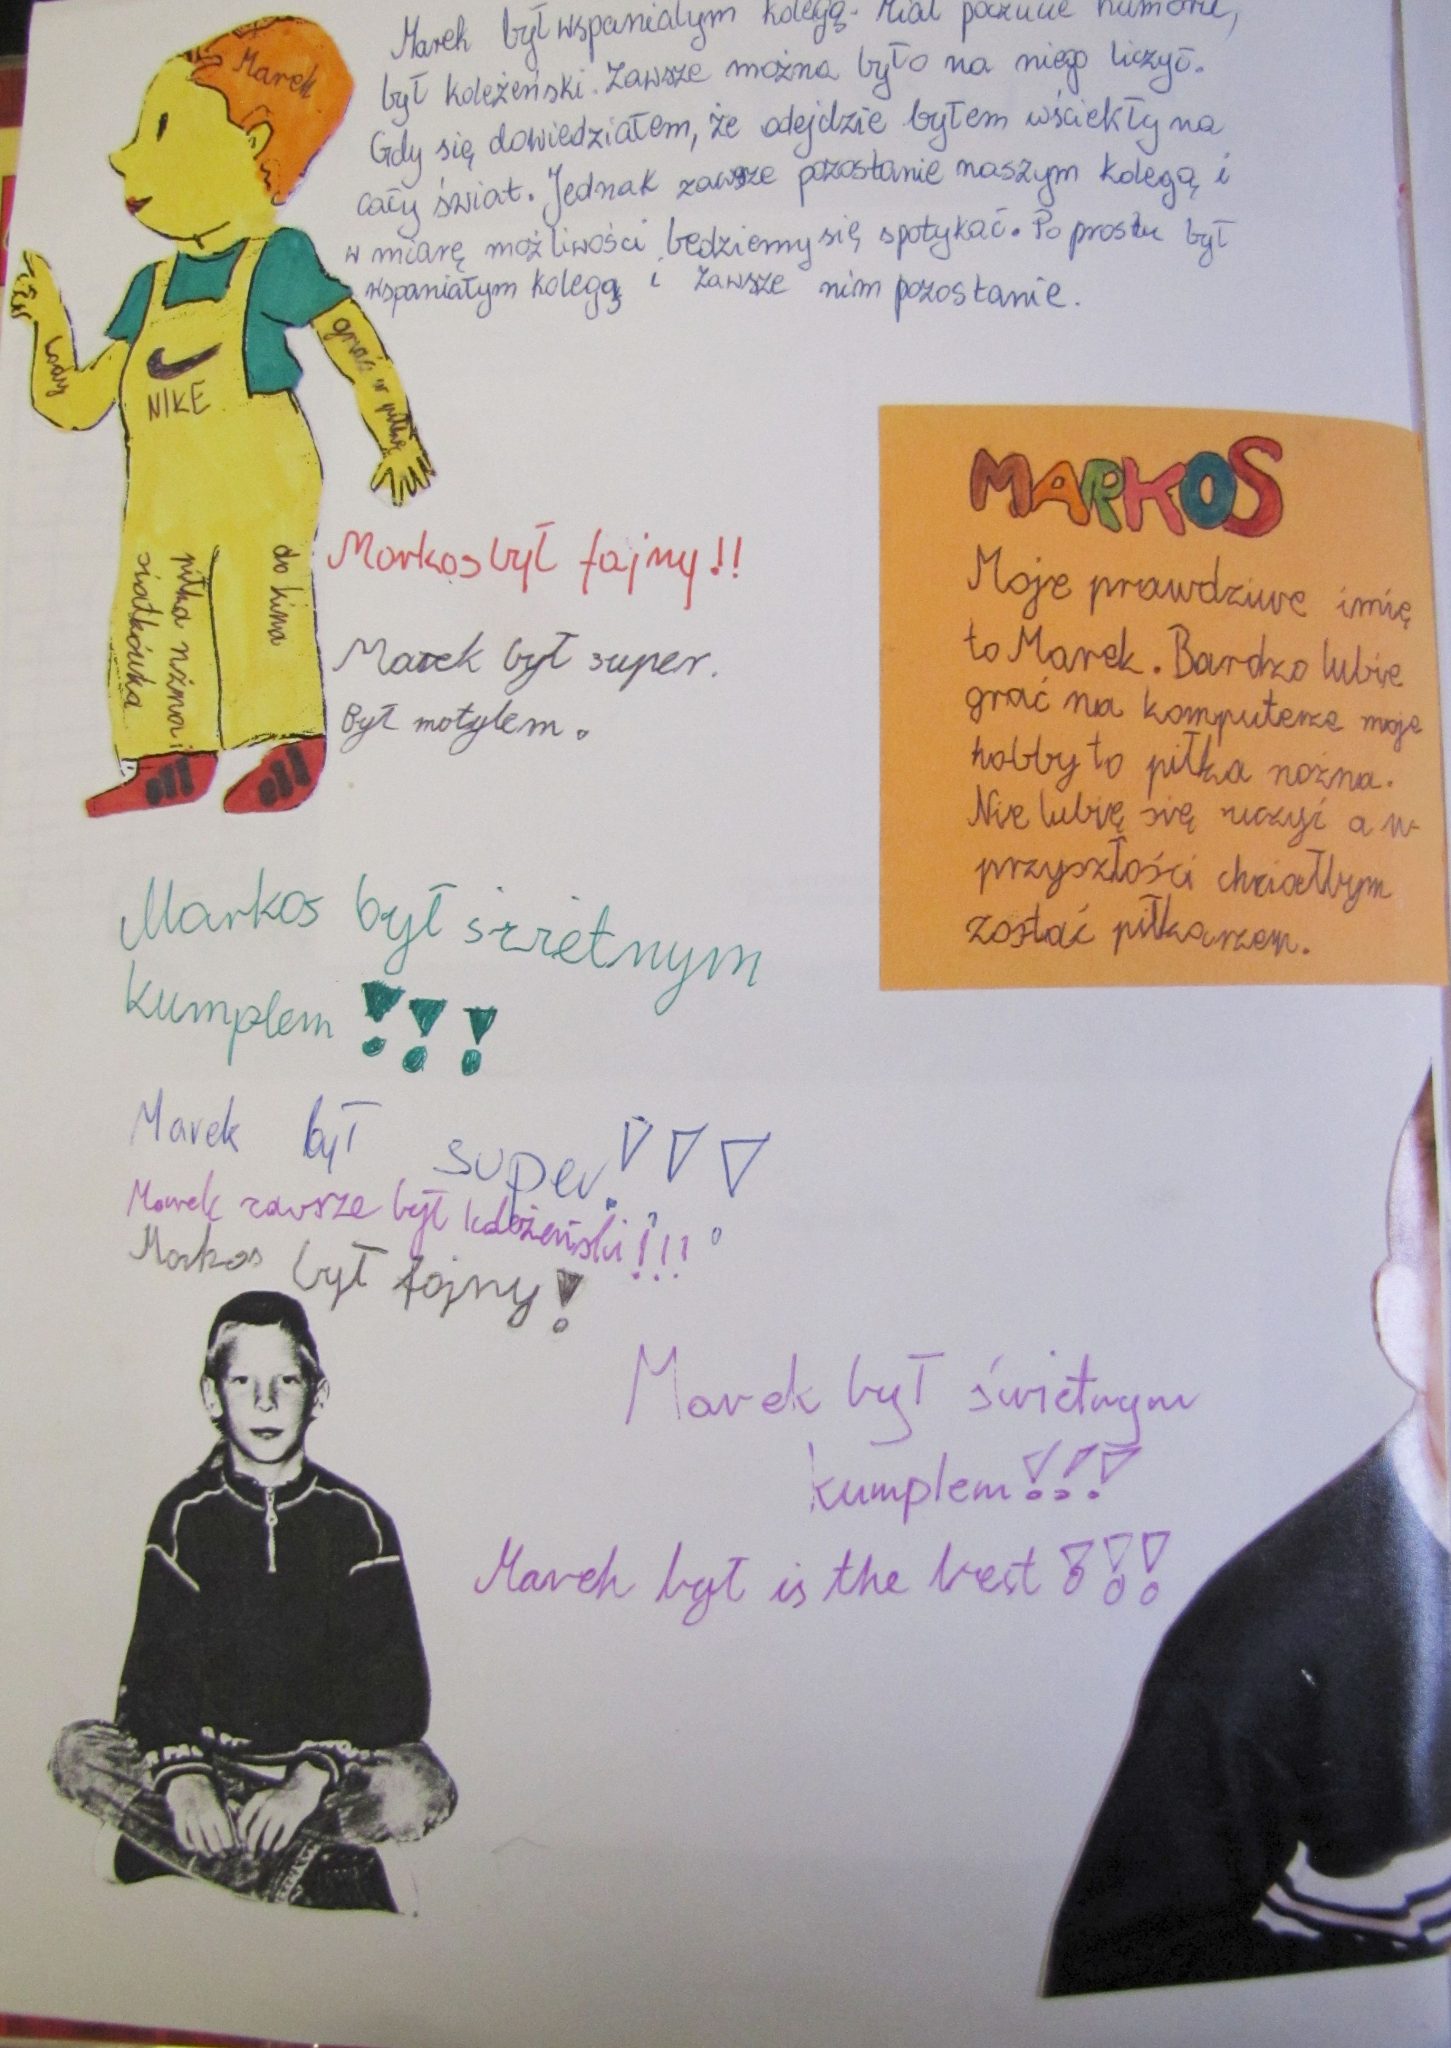 Marek był wspaniałym kolegą. Miał poczucie humoru,
był koleżeński. Zawsze można było na niego liczyć.
Gdy się dowiedziałem, że odejdzie byłem wściekły na
cały świat. Jednak zawsze pozostanie naszym kolegą i
w miarę możliwości będziemy się spotykać. Po prostu był
wspaniałym kolegą i zawsze nim pozostanie.
Marek
lody
grać w piłkę
NIKE
siatkówka
piłka nożna i
do kina
Markos był fajny!!
Marek był super.
Był motylem.
MARKOS
Moje prawdziwe imię
to Marek. Bardzo lubię
grać na komputerze moje
hobby to piłka nożna.
Nie lubię się uczyć a w
przyszłości chciałbym
zostać piłkarzem.
Markos był świetnym
kumplem!!!
Marek był super!!!
Marek zawsze był koleżeński!!!
Markos był fajny!
Marek był świetnym
kumplem!!!
Marek był is the best!!!